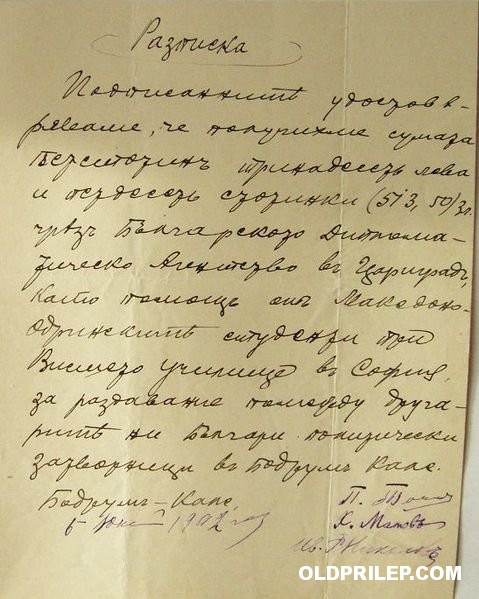 Разписка
Подписанитѣ удостов-
ряваме, че получихме сумата
Петстотинъ тринадесеть лева
и петдесеть стотинки (513,50) зл.
чрѣзъ Българското Диплома-
тическо Агентство въ Цариградъ,
като помощь отъ Македоно-
Одринскитѣ студенти при
Висшето училище въ София,
за раздаване помежду друга-
ритѣ ни Българи политически
затворници въ Бодрумъ Кале.
Бодрумъ-Кале
5 Юний 190
П.
Х. Матовъ
Ив.
OLDPRILEP.COM